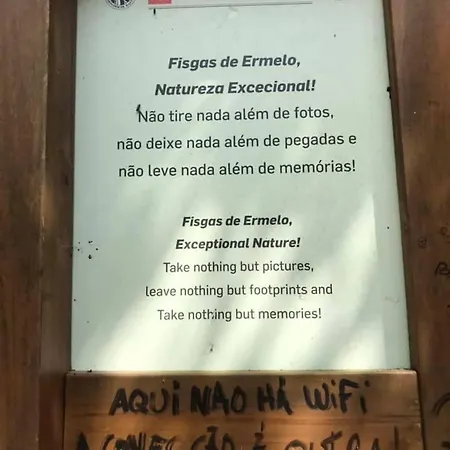 Fisgas de Ermelo,
Natureza Excecional!
Não tire nada além de fotos,
não deixe nada além de pegadas e
não leve nada além de memórias!
Fisgas de Ermelo,
Exceptional Nature!
Take nothing but pictures,
leave nothing but footprints and
Take nothing but memories!
AQUI NÃO HÁ WiFi
A CONEC ÇÃO É OUTRA!